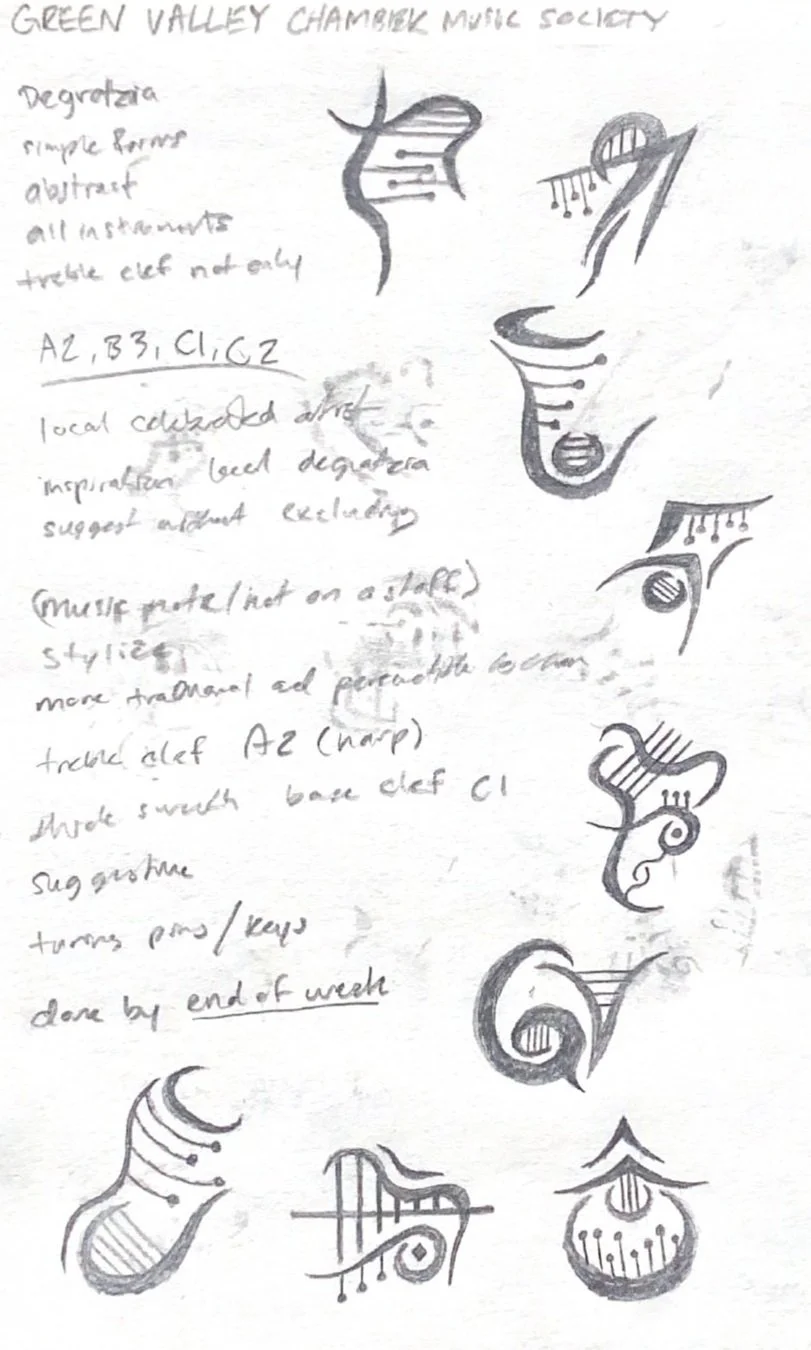 GREEN VALLEY CHAMBER MUSIC SOCIETY
Degratzia
simple forms
abstract
all instruments
treble clef not only
A2, B3, C1, C2
local celebrated artist
inspiration local degratzia
suggest without excluding
(music note/not on a staff)
stylize
more traditional and
treble clef A2 (harp)
base clef C1
suggestive
tuning pins/keys
done by end of week